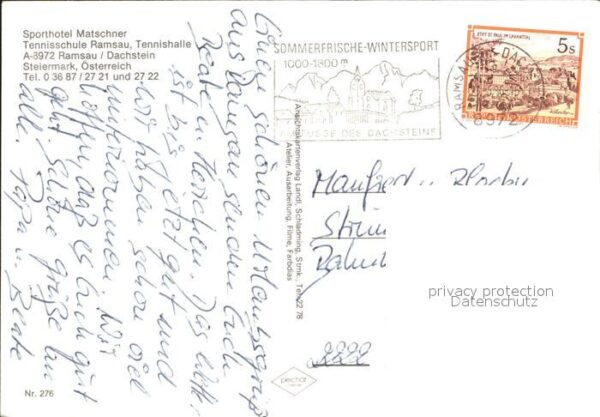 Sporthotel Matschner
Tennisschule Ramsau, Tennishalle
A-8972 Ramsau / Dachstein
Steiermark, Österreich
Tel. 0 36 87 / 27 21 und 27 22
SOMMERFRISCHE-WINTERSPORT
1000-1800 m
AM FUSSE DES DACHSTEINS
RAMSAU
8972
STIFT ST. PAUL IM LAVANTTAL
5s
REPUBLIK ÖSTERREICH
Einen schönen Urlaubsgruß
aus Ramsau senden Euch
Beate
Das Wetter
ist bis jetzt gut und
wir haben schon viel
unternommen. Wir
hoffen, daß es Euch gut
geht. Schöne Grüße an
alle. Papa u.
Beate
Ansichtskartenverlag Landl, Schladming, Stmk., Tel. 22 78
Atelier, Ausarbeitung, Filme, Farbdias
Manfred u.
privacy protection
Datenschutz
Nr. 276